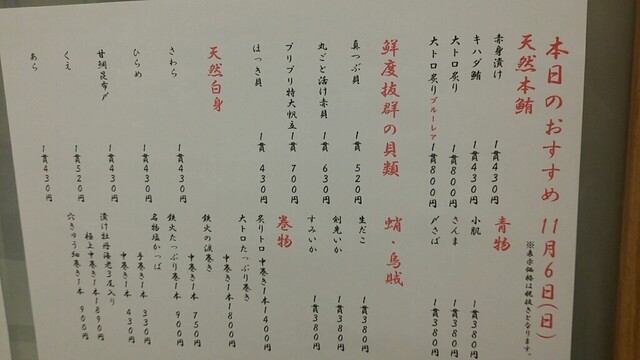 本日のおすすめ 11月6日(日)
※表示価格は税抜きとなります。
天然本鮪
赤身漬け 1貫430円
キハダ鮪 1貫430円
大トロ炙り 1貫800円
大トロ炙りブルーレア 1貫800円
青物
小肌 1貫380円
さんま 1貫380円
〆さば 1貫380円
鮮度抜群の貝類
真つぶ貝 1貫 520円
丸ごと活け赤貝 1貫 630円
プリプリ特大帆立 1貫 700円
ほっき貝 1貫 430円
蛸・烏賊
生だこ 1貫380円
剣先いか 1貫380円
すみいか 1貫380円
天然白身
さわら 1貫430円
ひらめ 1貫430円
甘鯛昆布〆 1貫430円
くえ 1貫520円
あら 1貫430円
巻物
炙りトロ 中巻き1本1400円
大トロたっぷり巻き 中巻き1本1800円
鉄火の磯巻き 中巻き1本 750円
鉄火たっぷり巻き1本 900円
名物塩かっぱ 手巻き1本 330円
中巻き1本 430円
漬け牡丹海老3尾入り 極上中巻き1本1890円
穴きゅう細巻き1本 900円